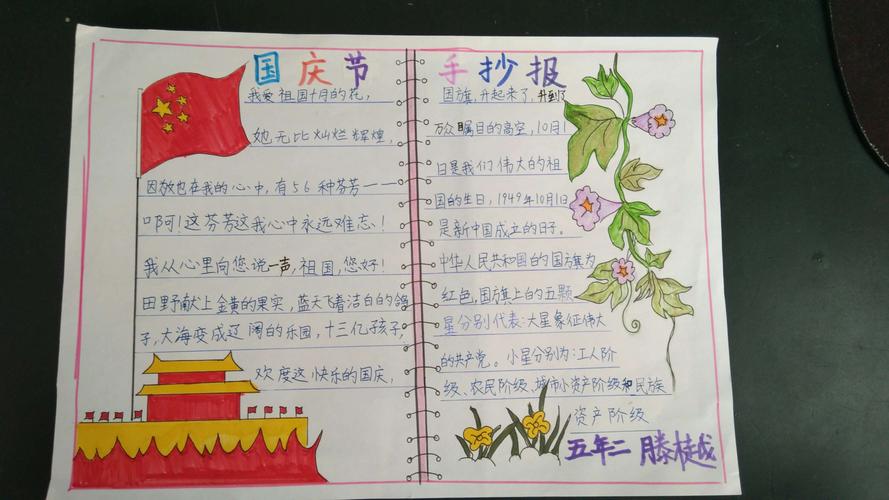 国庆节 手抄报
我爱祖国十月的花,
她无比灿烂辉煌,
因放也在我的心中,有56种芬芳——
口阿!这芬芳这我心中永远难忘!
我从心里向您说一声,祖国,您好!
田野献上金黄的果实,蓝天飞着洁白的鸽
子,大海变成辽阔的乐园,十三亿孩子,
欢度这快乐的国庆,
国旗,升起来了,升到了
万众瞩目的高空,10月1
日是我们伟大的祖
国的生日,1949年10月1日
是新中国成立的日子。
中华人民共和国的国旗为
红色,国旗上的五颗
星分别代表:大星象征伟大
的共产党。小星分别为:工人阶
级、农民阶级、城市小资产阶级和民族
资产阶级
五年二 滕